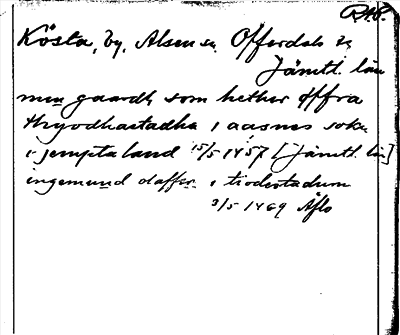 RAP.
Kösta, by, Alsen sn Offerdals tg
Jämtl. län
min gaardh som hether öffra
thyodhastadha i aasnes sokn
i jempta land 15/5 1457 [Jämtl. län]
ingemund olaffsn i tiodestadum
3/5 1469 Åflo